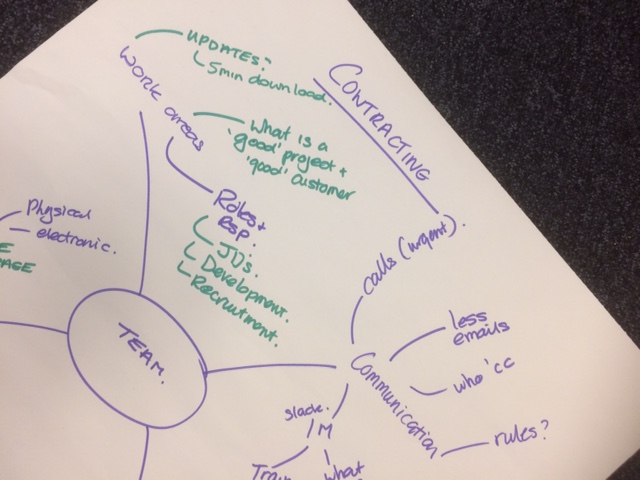 UPDATES:
5min download.
CONTRACTING
Work areas
What is a
'good' project +
'good' customer
Roles +
RSP.
JD's.
Development.
Recruitment.
Physical
electronic.
TEAM.
calls (urgent).
less
emails
who 'cc
Communication
rules?
slack.
IM
what